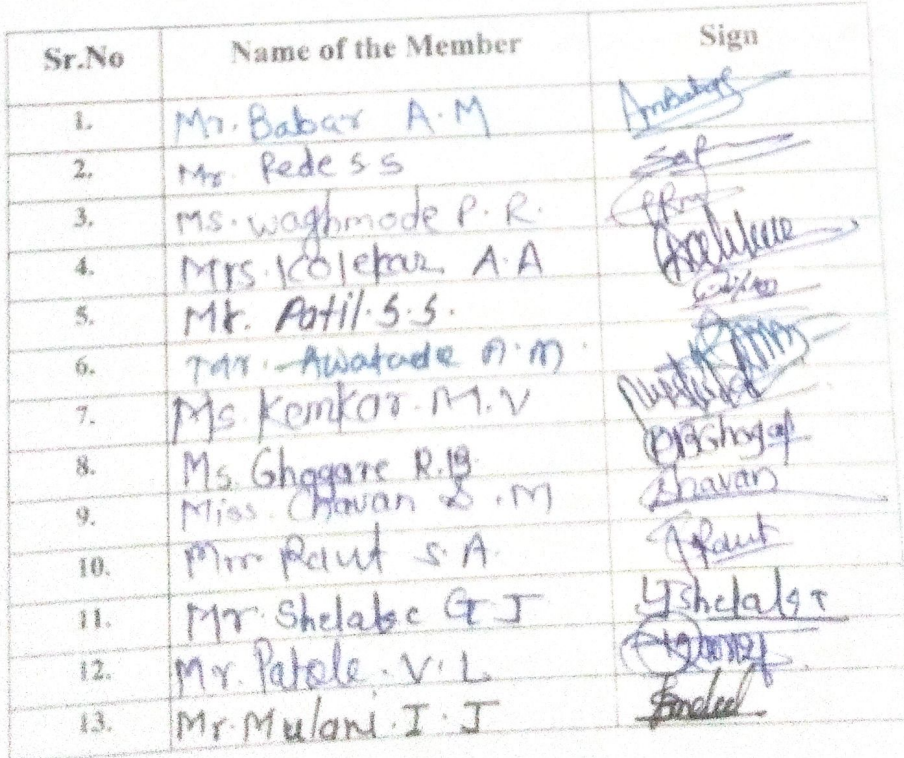 Sr.No Name of the Member Sign
1. Mr. Babar A.M AmBabar
2. Mr. Pede S S
3. Ms. Waghmode P. R.
4. Mrs. Kolekar A.A
5. Mr. Patil.S.S.
6. Mr. Awatade A.M.
7. Ms. Kemkar. M.V
8. Ms. Ghogare R.B.
9. Miss. Chavan S.M Shavan
10. Mr. Raut S.A. Raut
11. Mr. Shelake G J
12. Mr. Patole. V.L
13. Mr. Mulani. I. J